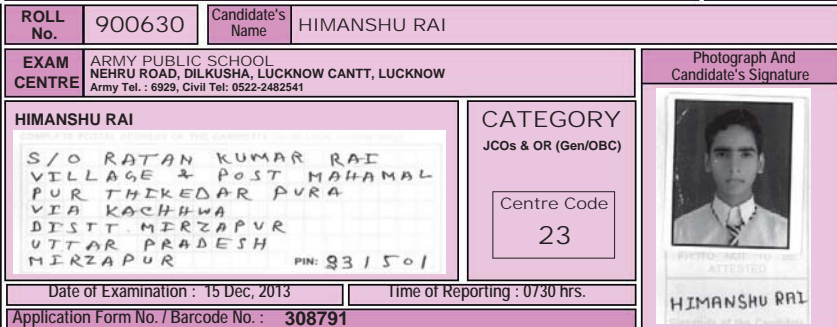 ROLL No. 900630 Candidate's Name HIMANSHU RAI
EXAM CENTRE
ARMY PUBLIC SCHOOL
NEHRU ROAD, DILKUSHA, LUCKNOW CANTT, LUCKNOW
Army Tel. : 6929, Civil Tel: 0522-2482541
Photograph And
Candidate's Signature
HIMANSHU RAI
S/O RATAN KUMAR RAI
VILLAGE & POST MAHAMAL
PUR THIKEDAR PURA
VIA KACHHWA
DISTT. MIRZAPUR
UTTAR PRADESH
MIRZAPUR PIN: 231501
CATEGORY
JCOs & OR (Gen/OBC)
Centre Code
23
PHOTO NOT TO BE
ATTESTED
HIMANSHU RAI
Date of Examination : 15 Dec, 2013 Time of Reporting : 0730 hrs.
Application Form No. / Barcode No. : 308791